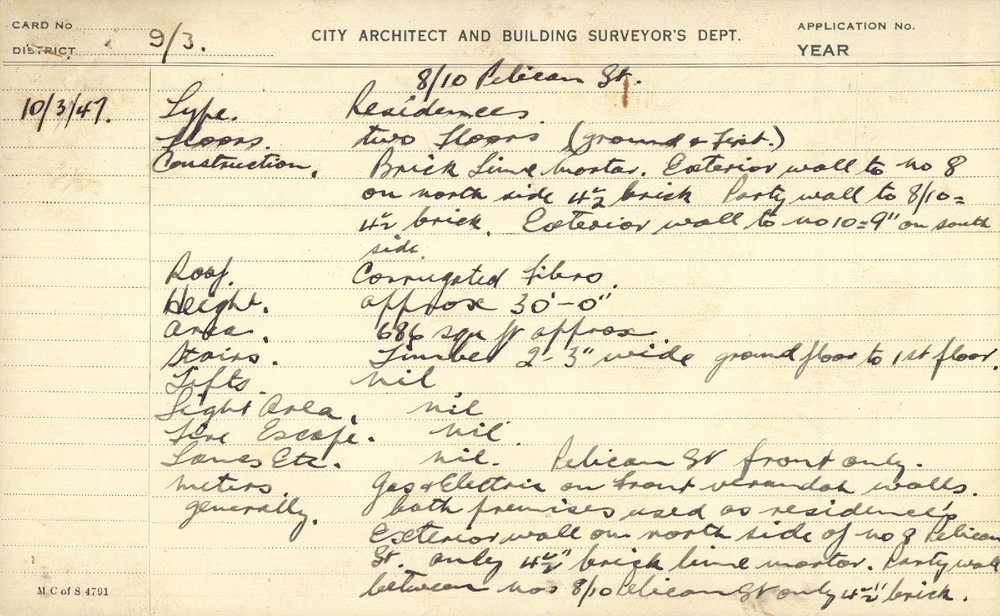 CARD No
DISTRICT.
9/3.
CITY ARCHITECT AND BUILDING SURVEYOR'S DEPT.
APPLICATION No.
YEAR
8/10 Pelican St.
10/3/47. Type. Residences
Floors. two floors (ground & First.)
Construction. Brick Lime Mortar. Exterior wall to no 8
on north side 4½ brick Party wall to 8/10=
4½ brick. Exterior wall to no 10=9" on south
side.
Roof. Corrugated Fibro.
Height. approx 30'-0"
Area. 686 squ ft approx
Stairs. Timber 2'-3" wide ground floor to 1st floor.
Lifts. nil
Light Area. nil
Fire Escape. nil.
Lanes Etc. nil. Pelican St front only.
Meters. Gas & Electric on front verandah walls.
generally. both premises used as residences
Exterior wall on north side of no 8 Pelican
St. only 4½" brick lime mortar. Party wall
between nos 8/10 Pelican St only 4½" brick.
M C of S 4791